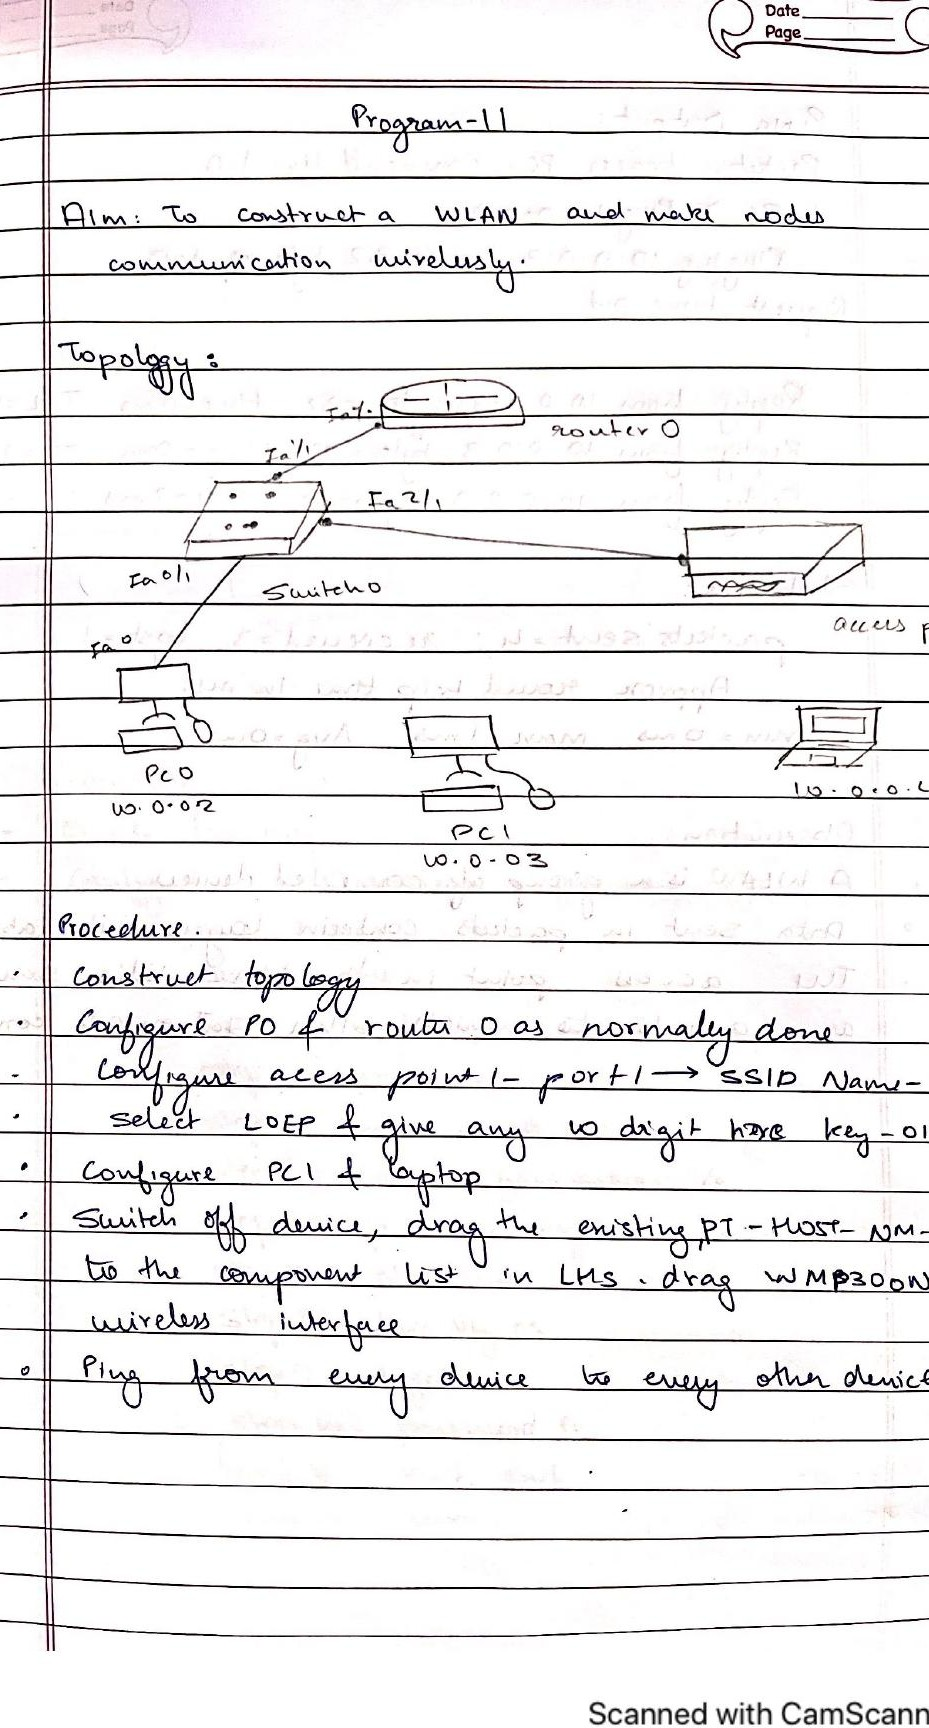 Date
Page
Program-11
Aim: To construct a WLAN and make nodes
communication wirelessly.
Topology:
router 0
Fa 1/1
Fa 2/1
Fa 0/1
Switch0
access p
Fa 0
PC0
10.0.02
PC1
10.0.03
10.0.0.
Procedure.
Construct topology
Configure P0 & router 0 as normaley done
Configure acess point 1- port 1 → SSID Name-
Select WEP & give any 10 digit key-01
Configure PC1 & laptop
Switch off device, drag the existing PT-HOST-NM-
to the component list in LHS. drag WMP300N
wireless interface
Ping from every device to every other device
Scanned with CamScann